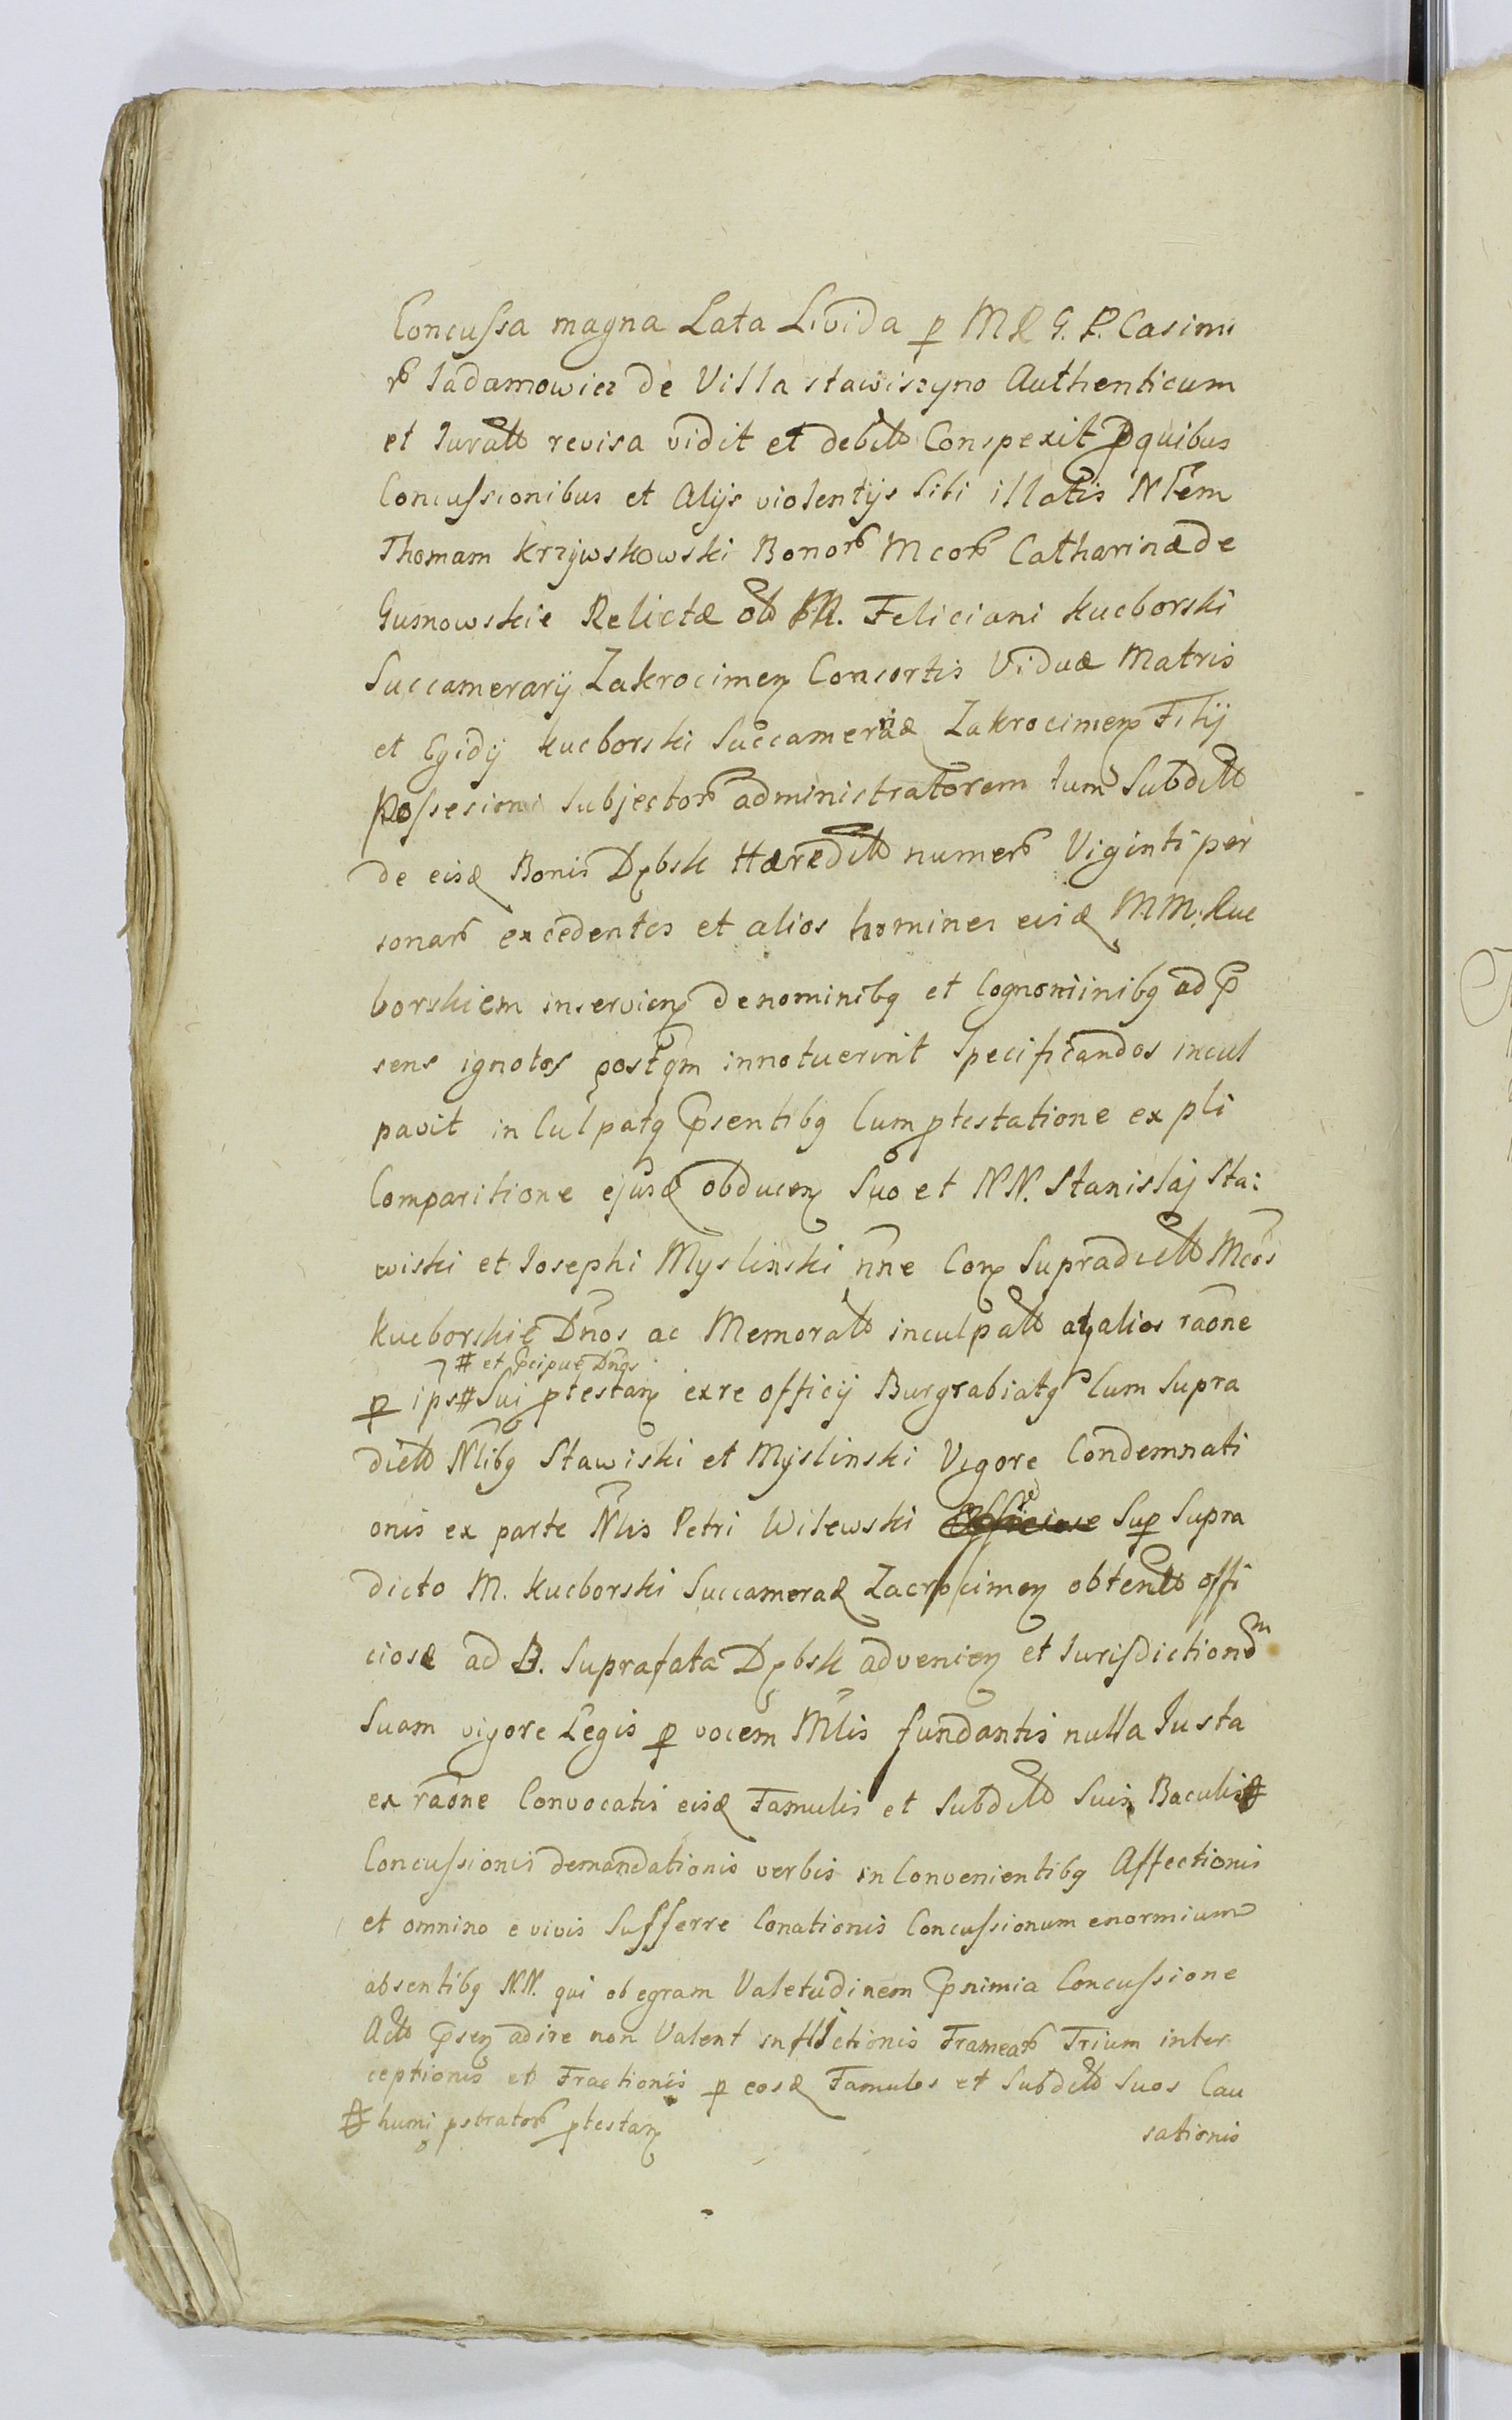 Concussa magna Lata Livida p MR G. P. Casimi
ro Jadamowicz de Villa stawiszyno Authenticum
et Jurato revisa vidit et debito Conspexit p quibus
Concussionibus et Alijs violentijs sibi illatis Nlem
Thomam Krzywskowski Bonor Mcor Catharinæ de
Gumowskie Relictæ ob M. Feliciani Kucborski
Succamerarij Zakrocimen Consortis Viduæ Matris
et Egidij Kucborski Succameridæ Zakrocimen Filij
Possesioni subjector administratorem tum Subdito
de eisd Bonis Dębsk Hæredito numero Viginti per
sonar excedentes et alios homines eisd MM. Kuc
borskiem inservien de nominibq et Cognominibq ad p
sens ignotos postqm innotuerint specificandos incul
pavit inculpatq psentibq Cum ptestatione ex pli
Comparitione ejusd obducen Suo et NN. Stanislaj Sta:
wiski et Josephi Myslinski nne Con Supradicto Mcos
Kucborskie Dnos ac Memorato inculpato atq alios raone
# et pcipue Dnos
p ips # Sui ptestan exre officij Burgrabiatq Cum supra
dicto Nlibq Stawiski et Myslinski Vigore Condemnati
onis ex parte Nlis Petri Wilewski Sup Supra
dicto M. Kucborski Succamerad Zacrocimen obtento offi
ciose ad B. Suprafata Dębsk advenien et Jurisdictionem
Suam vigore Legis p vocem Mlis fundantis nulla Justa
ex raone Convocatis eisd Famulis et Subdito Suis Baculis #
Concussionis demandationis verbis inconvenientibq Affectionis
et omnino e vivis Sufferre Conationis Concussionum enormium
absentibq N.N. qui ob egram Valetudinem p nimia Concussione
Acto psen adire non Valent inflictionis Framear Trium inter
ceptionis et Fractionis p eosd Famulos et Subdito Suos Cau
# humi pstrator ptestan
sationis